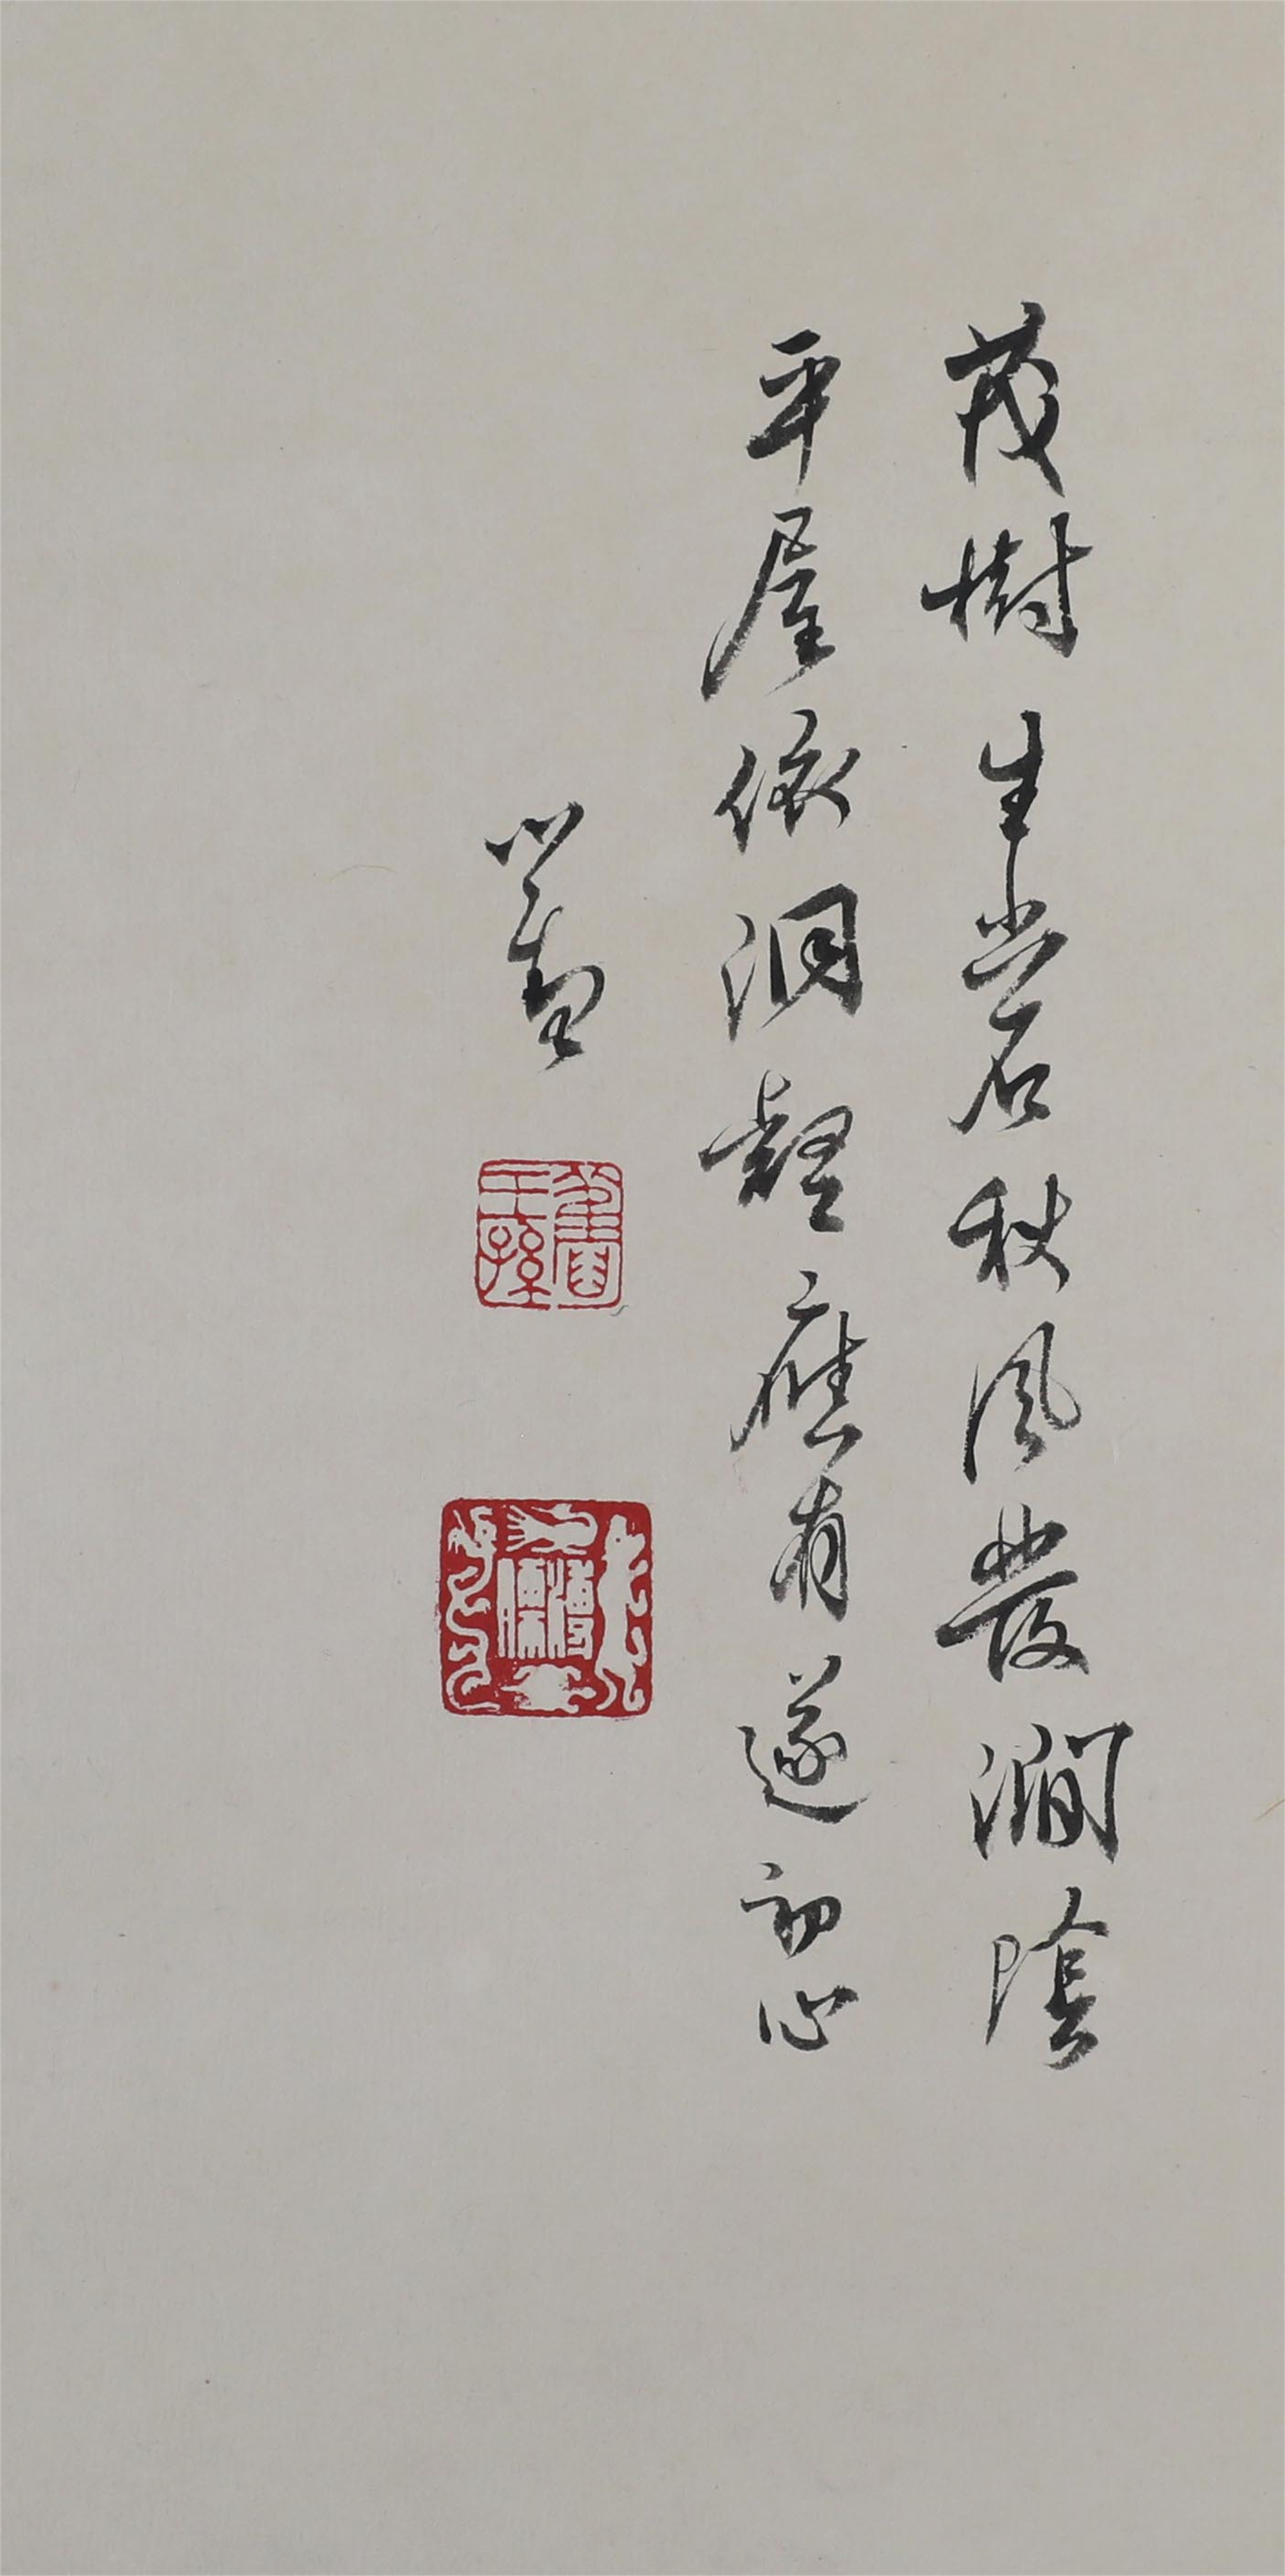 茂樹生岩石秋風發澗陰
平屋依洞壑應有遂初心
心畬
舊王孫
溥儒